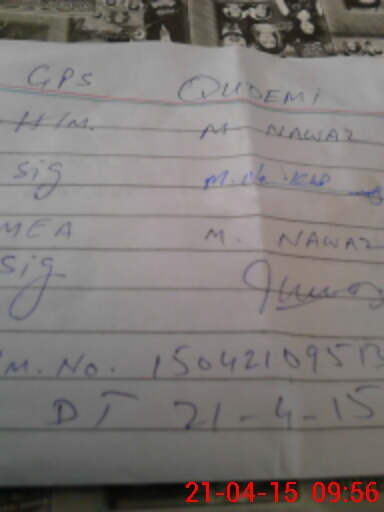 GPS QUDEMI
H/M. M NAWAZ
Sig
MEA M. NAWAZ
Sig
M. No. 1504210951
DT 21-4-15
21-04-15 09:56